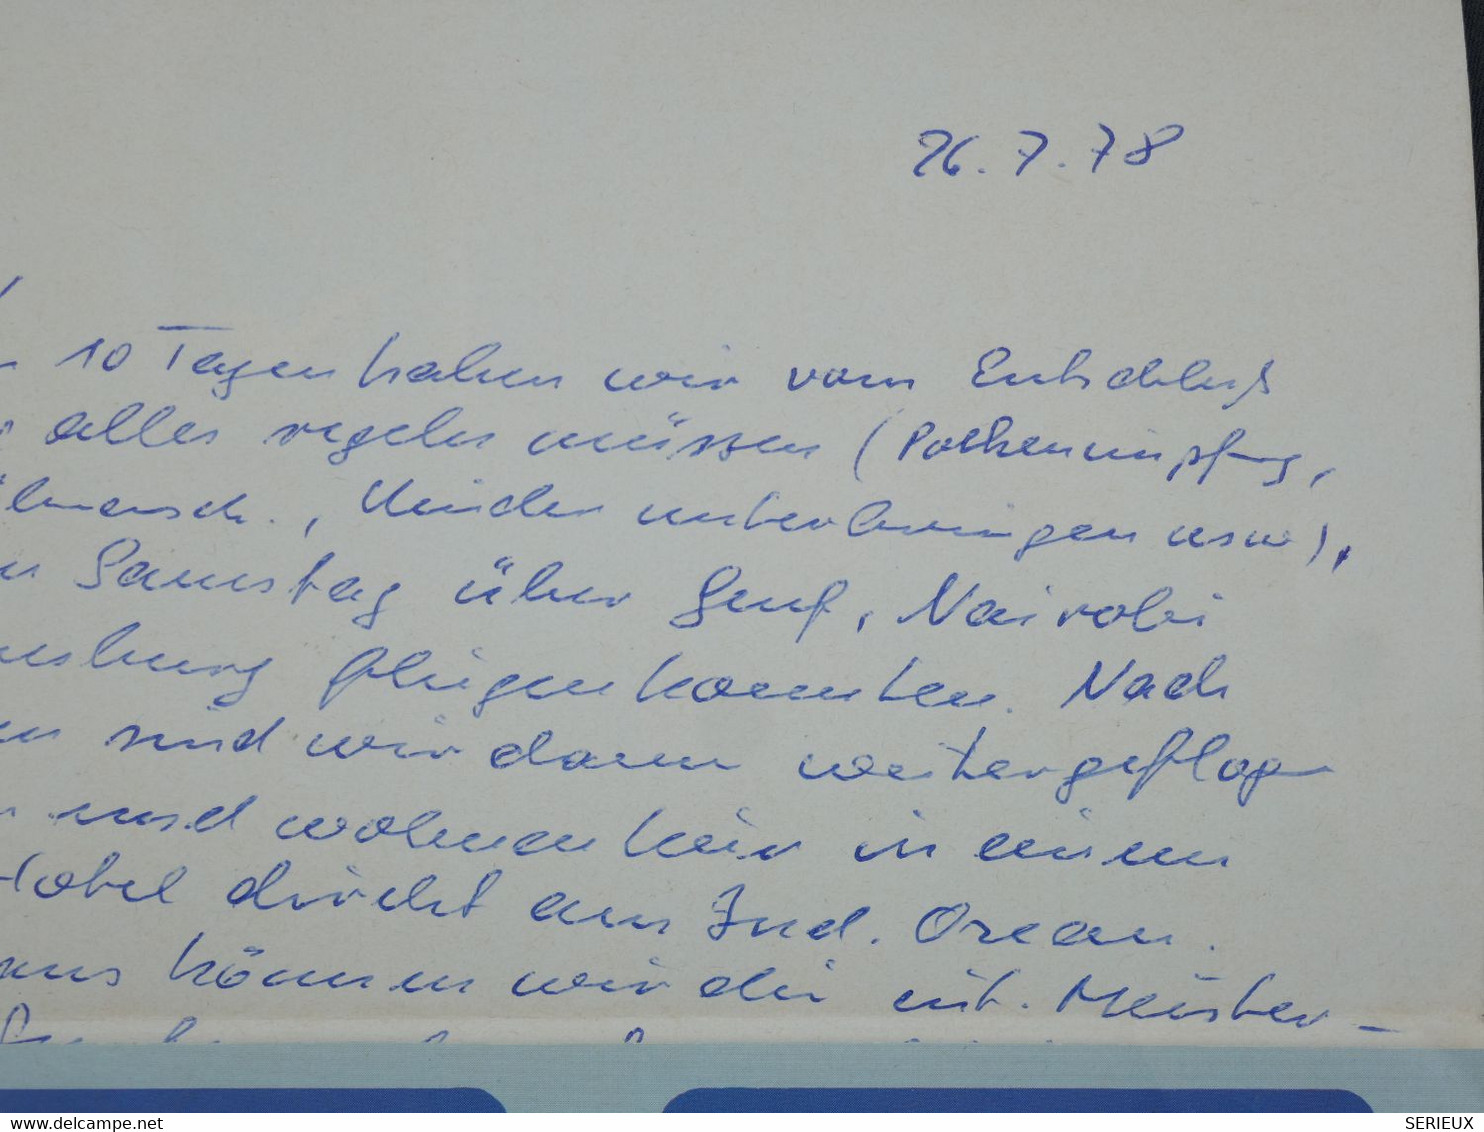 26.7.78
10 Tagen haben wir vom Entschluß
alles regeln müssen (Pockenimpfung,
Kinder unterbringen usw),
Samstag über Genf, Nairobi
fliegen konnten. Nach
sind wir dann weitergeflogen
und wohnen hier in einem
Hotel direkt am Ind. Ozean.
können wir die int. Meister-
www.delcampe.net
SERIEUX